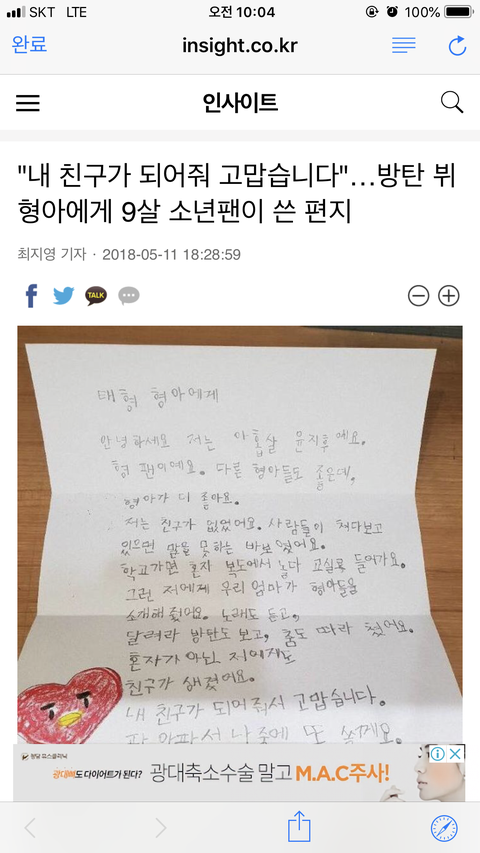 SKT LTE 오전 10:04 100%
완료 insight.co.kr
인사이트
"내 친구가 되어줘 고맙습니다"...방탄 뷔
형아에게 9살 소년팬이 쓴 편지
최지영 기자 · 2018-05-11 18:28:59
TALK
태형 형아에게
안녕하세요 저는 아홉살 윤지후예요.
형 팬이예요. 다른 형아들도 좋은데,
형아가 더 좋아요.
저는 친구가 없었어요. 사람들이 쳐다보고
있으면 말을 못하는 바보 였어요.
학교가면 혼자 복도에서 놀다 교실로 들어가요.
그런 저에게 우리 엄마가 형아들을
소개해 줬어요. 노래도 듣고,
달려라 방탄도 보고, 춤도 따라 췄어요.
혼자가 아닌 저에게도
친구가 생겼어요.
내 친구가 되어줘서 고맙습니다.
팔 아파서 나중에 또 쓸게요.
광대뼈도 다이어트가 된다? 광대축소수술 말고 M.A.C주사!